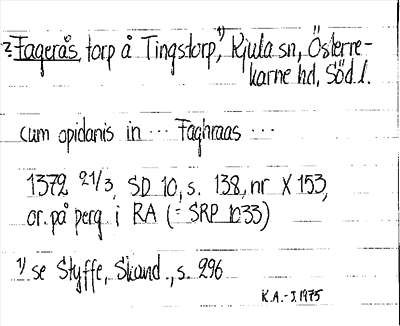 ? Fagerås, torp å Tingstorp,¹⁾ Kjula sn, Österre-
karne hd, Söd.l.
cum opidanis in ... Faghraas ...
1372 21/3, SD 10, s. 138, nr X 153,
or. på perg i RA (= SRP 1033)
¹⁾ se Styffe, Skand., s. 296
K.A.-J. 1975